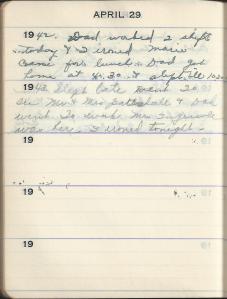 APRIL 29
1942. Dad worked 2 shifts
today & I ironed. Marie
came for lunch. Dad got
home at 4:30 & slept till
1943. Slept late went
Mr & Mrs & Dad
went to work. Mrs
was here. I ironed tonight.
19
19
19
19